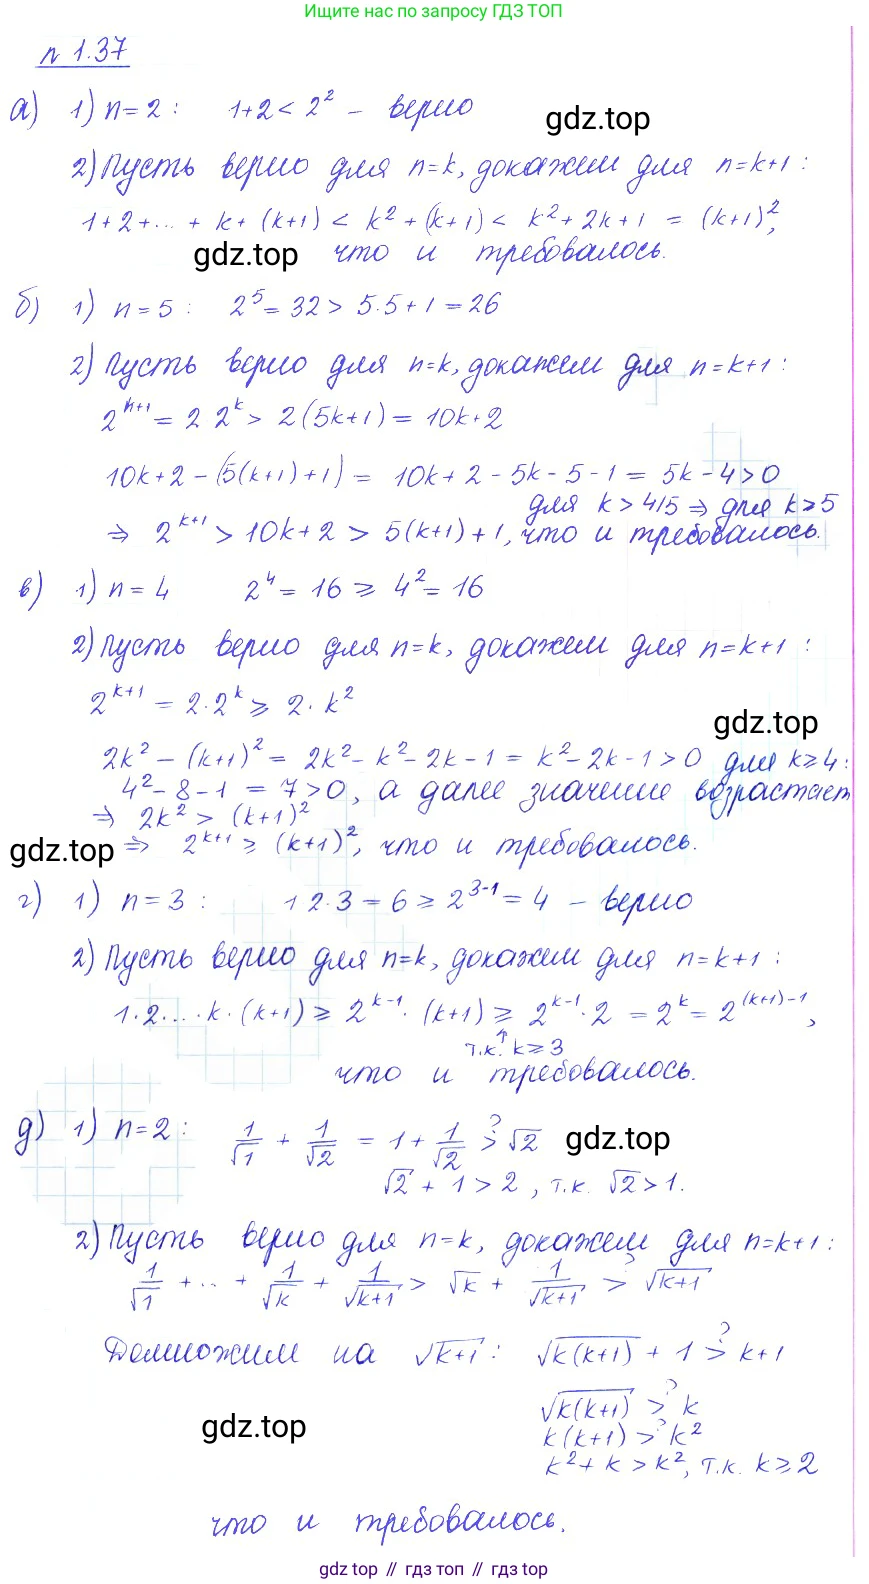 Ищите нас по запросу ГДЗ ТОП
n 1.37
а) 1) n=2 : 1+2 < 2² – верно
gdz.top
2) Пусть верно для n=k, докажем для n=k+1 :
1+2+...+ k+ (k+1) < k² + (k+1) < k²+2k+1 = (k+1)²,
gdz.top что и требовалось.
б) 1) n=5 : 2⁵=32 > 5·5+1=26
2) Пусть верно для n=k, докажем для n=k+1 :
2ⁿ⁺¹ = 2 2ᵏ > 2(5k+1) = 10k+2
10k+2 - (5(k+1)+1) = 10k+2-5k-5-1 = 5k-4>0
для k > 4/5 ⇒ для k ≥ 5
⇒ 2ᵏ⁺¹ > 10k+2 > 5(k+1)+1, что и требовалось.
в) 1) n=4 2⁴=16 ≥ 4²=16
2) Пусть верно для n=k, докажем для n=k+1 :
2ᵏ⁺¹ = 2·2ᵏ ≥ 2·k²
gdz.top
2k² - (k+1)² = 2k²-k²-2k-1 = k²-2k-1>0 для k≥4:
4²-8-1 = 7>0, а далее значение возрастает
⇒ 2k² > (k+1)²
gdz.top ⇒ 2ᵏ⁺¹ ≥ (k+1)², что и требовалось.
г) 1) n=3 : 1 2·3=6 ≥ 2³⁻¹=4 – верно
2) Пусть верно для n=k, докажем для n=k+1 :
1·2·...·k·(k+1) ≥ 2ᵏ⁻¹·(k+1) ≥ 2ᵏ⁻¹·2 = 2ᵏ = 2⁽ᵏ⁺¹⁾⁻¹,
↑
т.к. k≥3
что и требовалось.
д) 1) n=2 : 1/√1 + 1/√2 = 1 + 1/√2 >? √2 gdz.top
√2 + 1 > 2, т.к. √2 > 1.
2) Пусть верно для n=k, докажем для n=k+1 :
1/√1 +...+ 1/√k + 1/√(k+1) > √k + 1/√(k+1) >? √(k+1)
Домножим на √(k+1) : √(k(k+1)) + 1 >? k+1
√(k(k+1)) >? k
gdz.top
k(k+1) >? k²
k²+k > k², т.к. k≥2
что и требовалось.
gdz.top // гдз топ // gdz.top